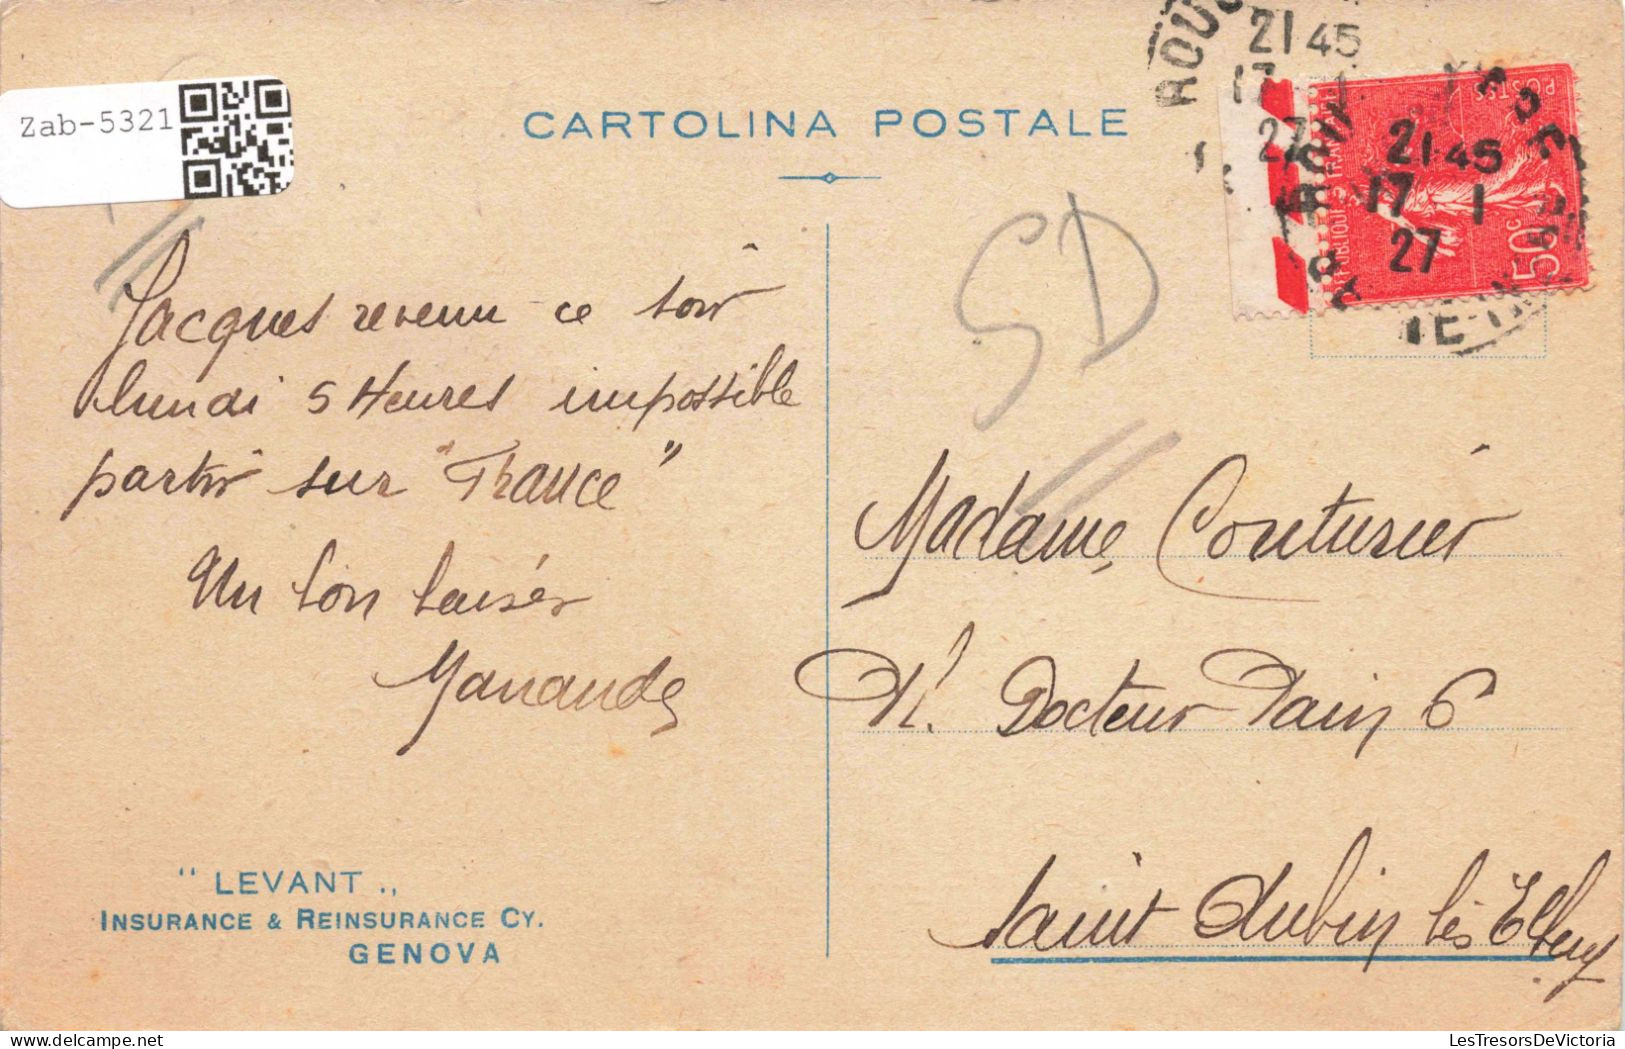 Zab-5321
CARTOLINA POSTALE
ROUEN
21 45
17 1
27
21 45
17 1
27
POSTES
50c
SD
Jacques revenu ce soir
lundi 5 Heures impossible
partir sur "France"
Un bon baiser
Madame Couturier
R. Docteur Pain 6
Saint Aubin lès Elbeuf
" LEVANT „
INSURANCE & REINSURANCE CY.
GENOVA
LesTresorsDeVictoria